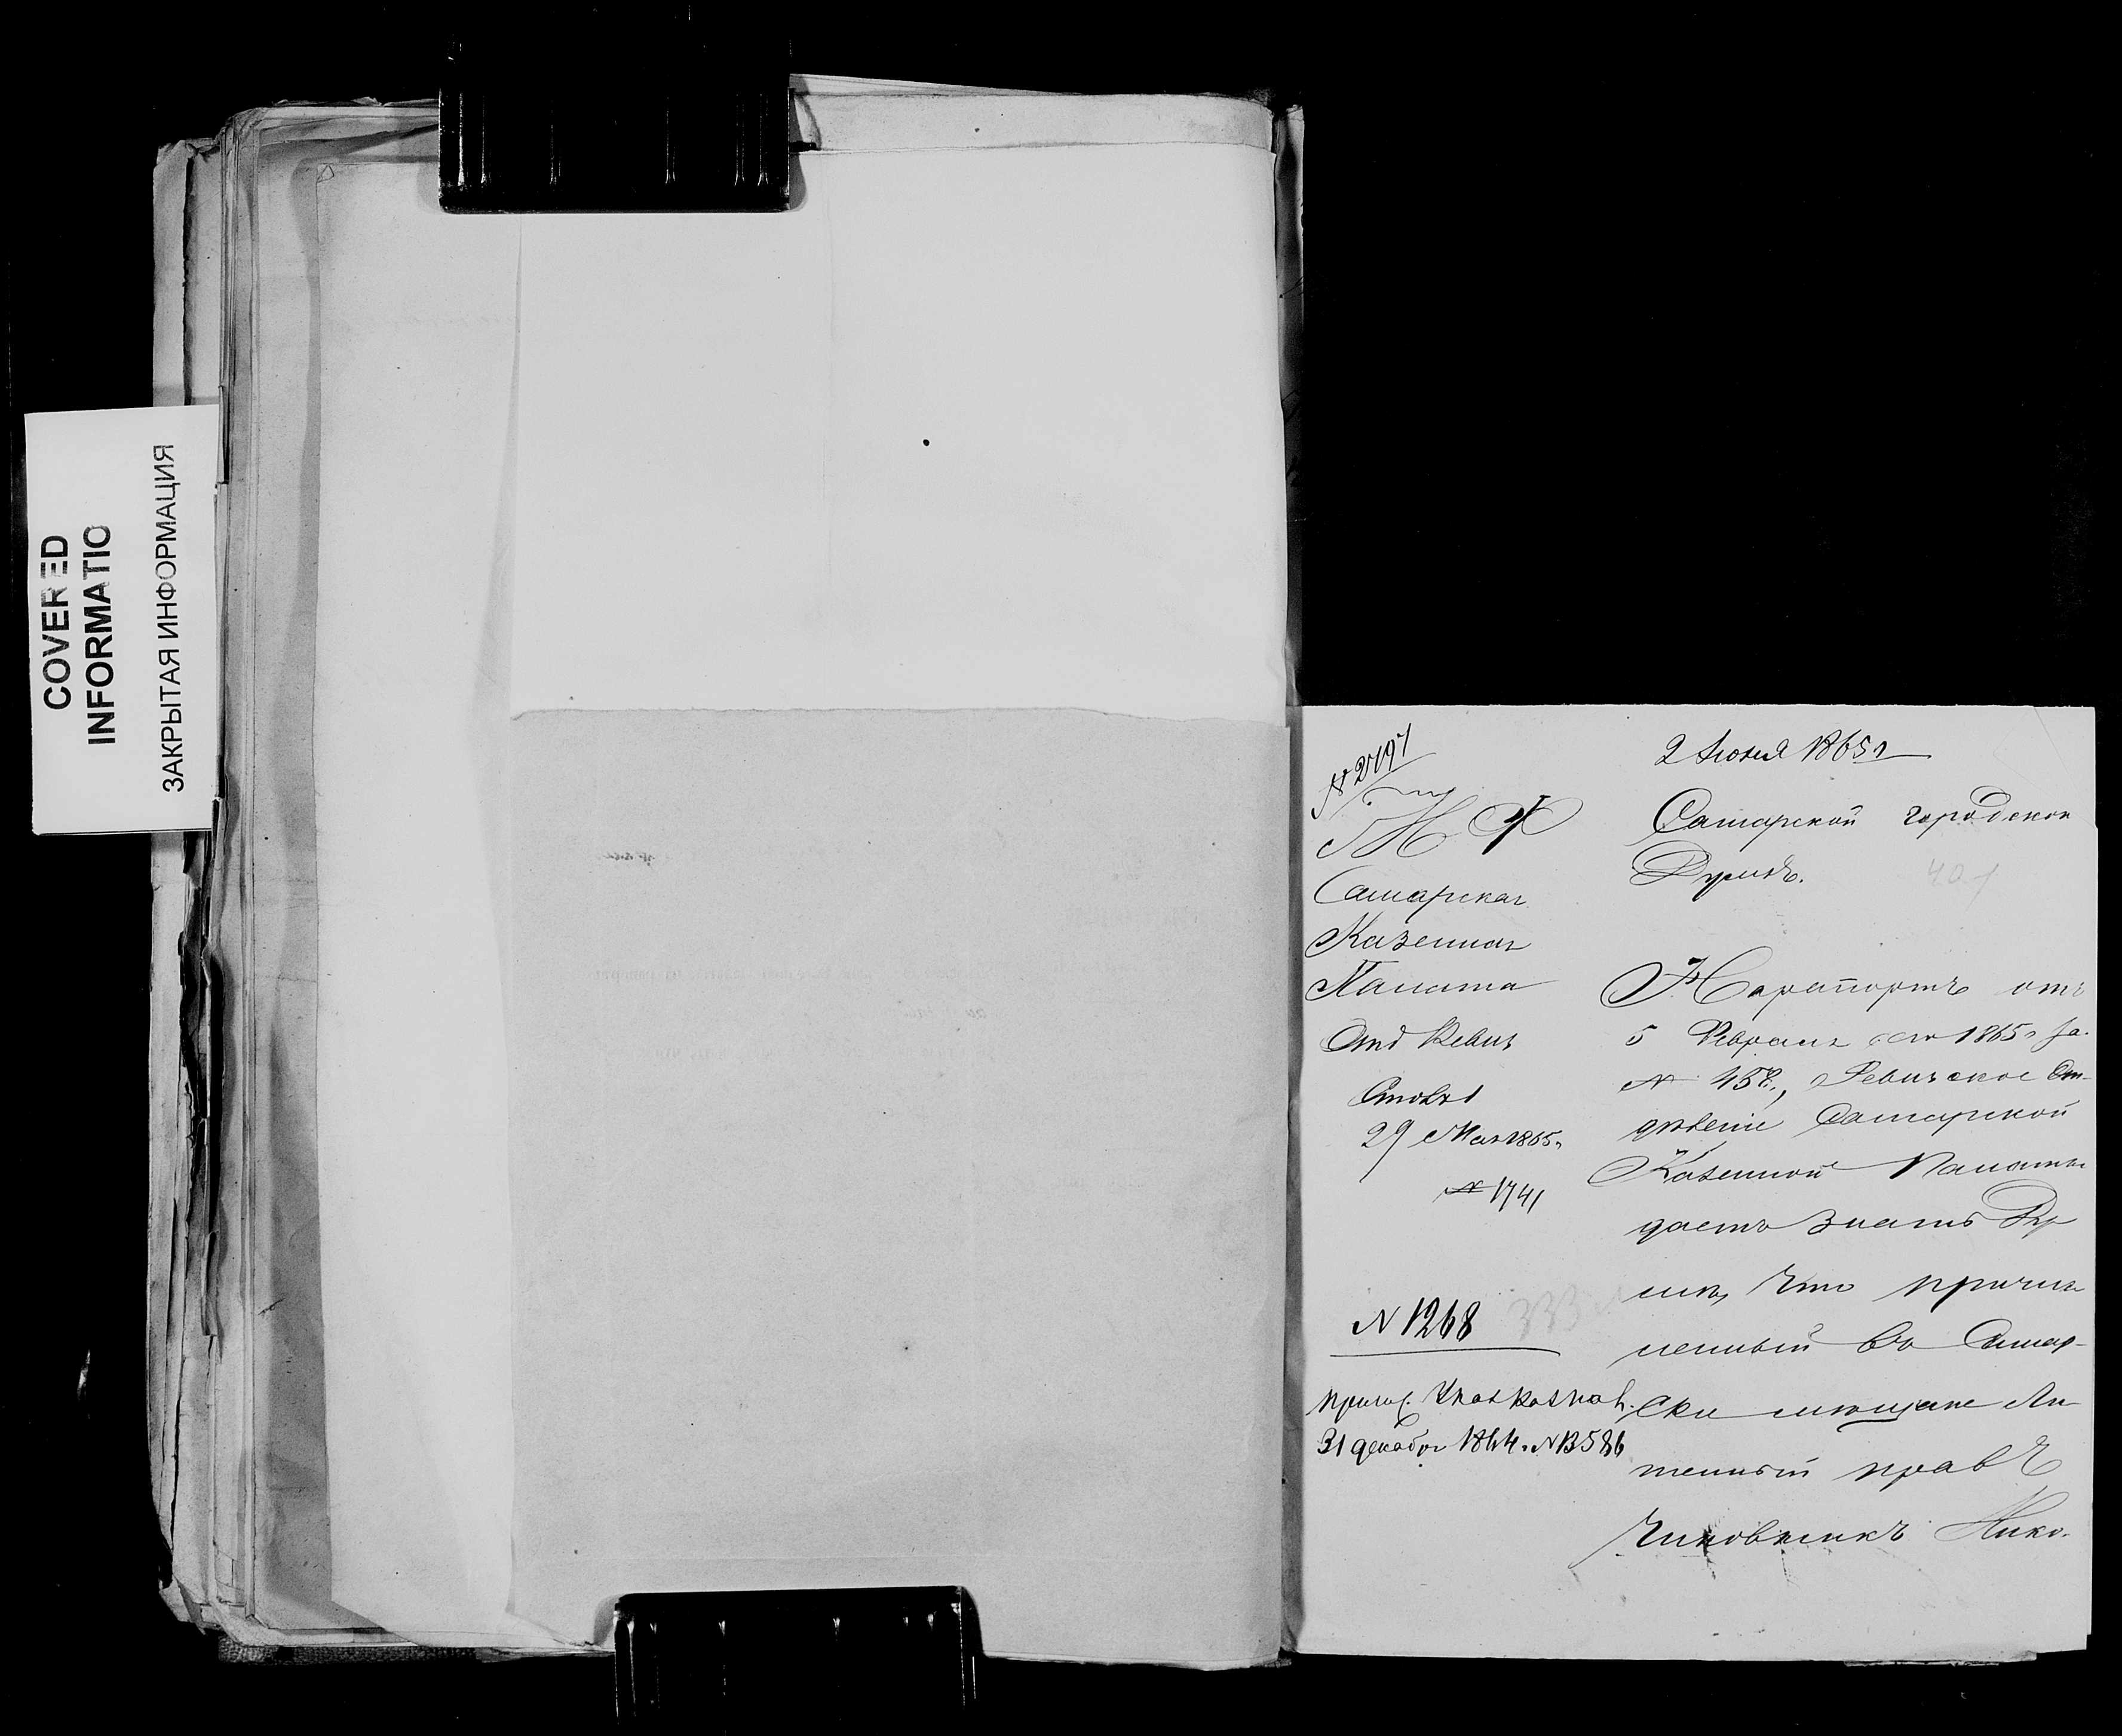 COVERED
INFORMATIO
ЗАКРЫТАЯ ИНФОРМАЦИЯ
№ 2797
М Ф
Самарская
Казенная
Палата
Отд Ревиз
Столъ 1
29 Мая 1865 г
№ 1741
№ 1268
333
31 декабря 1864. № 13586
2 Июня 1865 г
Самарской городской
Думѣ.
401
На рапортъ отъ
5 Февраля сего 1865 г за
№ 458, Ревизское От-
дѣленіе Самарской
Казенной Палаты
даетъ знать Ду
мѣ, что причис
ленный въ Самар-
ски мѣщане Ли
шенный правъ
Чиновникъ Нико-